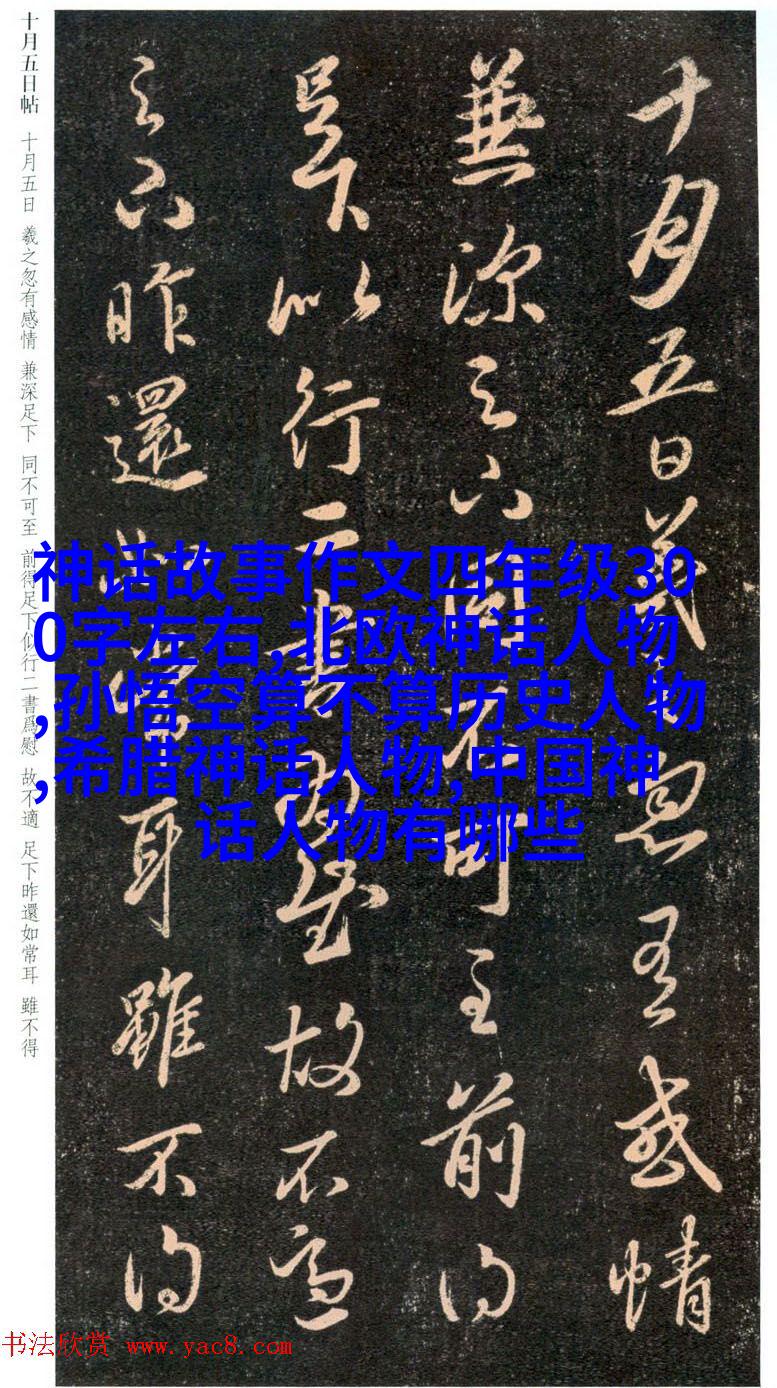 十月五日羲之忽有感情
兼深足下同不可至前得
足下似行二書爲慰故不適
足下昨還如常耳雖不得
十月五日帖 十月五日 羲之忽有感情 兼深足下 同不可至 前得足下似行二書爲慰 故不適 足下昨還如常耳 雖不得
神话故事作文四年级30
0字左右,北欧神话人物
,孙悟空算不算历史人物
,希腊神话人物,中国神
话人物有哪些
书法欣赏 www.yac8.com